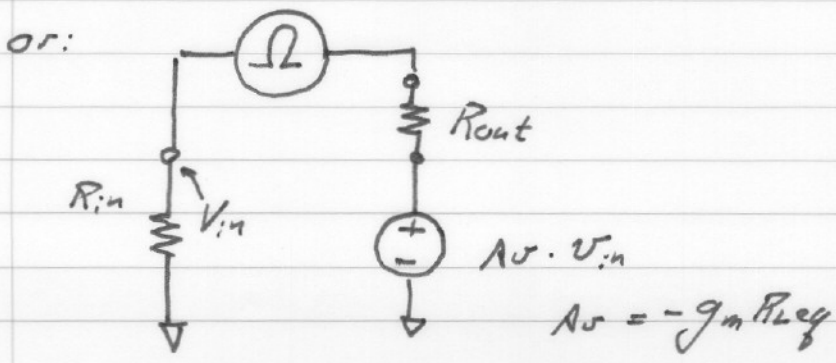 or:
Ω
Rout
Rin
Vin
+
-
Av · Vin
Av = -gm RLeq